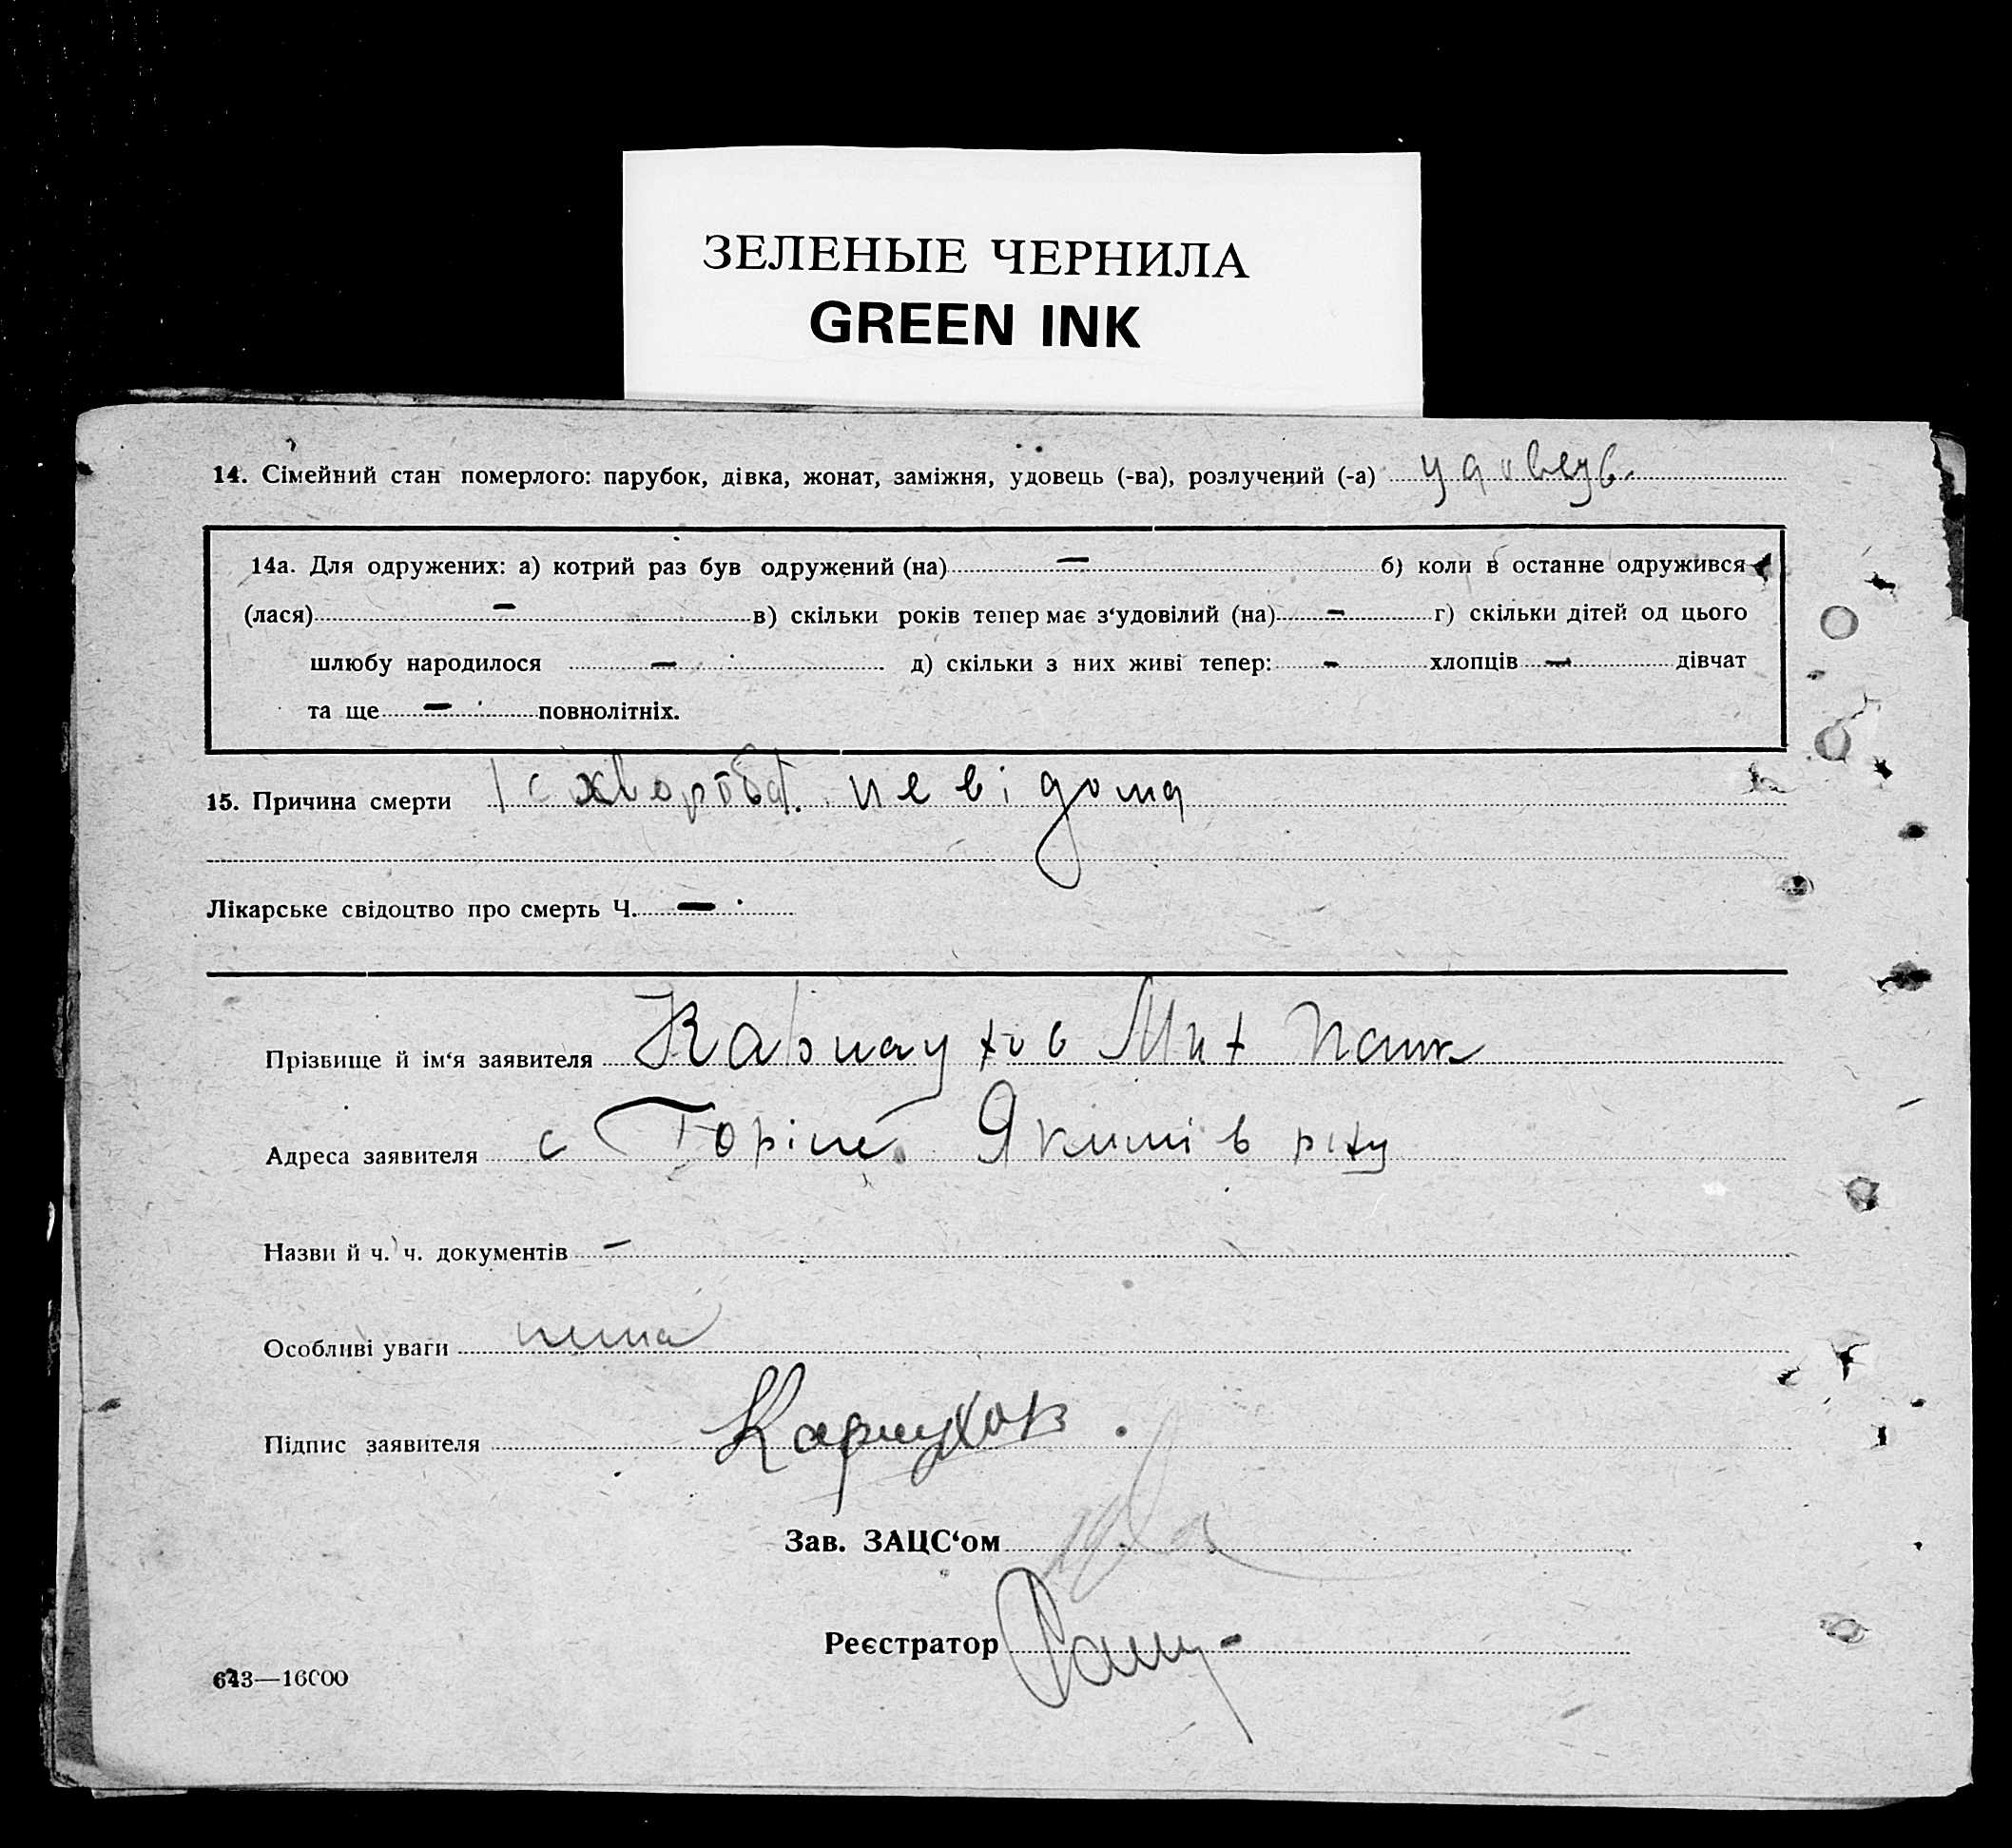 ЗЕЛЕНЫЕ ЧЕРНИЛА
GREEN INK
14. Сімейний стан померлого: парубок, дівка, жонат, заміжня, удовець (-ва), розлучений (-а) удовець
14а. Для одружених: а) котрий раз був одружений (на) — б) коли в останне одружився
(лася) — в) скільки років тепер має з‘удовілий (на) — г) скільки дітей од цього
шлюбу народилося — д) скільки з них живі тепер: — хлопців — дівчат
та ще — повнолітніх.
15. Причина смерти хвороба невідома
Лікарське свідоцтво про смерть Ч. —
Прізвище й ім‘я заявителя Карнаухов Мих
Адреса заявителя с Якимів р-ну
Назви й ч. ч. документів —
Особливі уваги нема
Підпис заявителя Карнухов
Зав. ЗАЦС‘ом
Реєстратор
643—16000